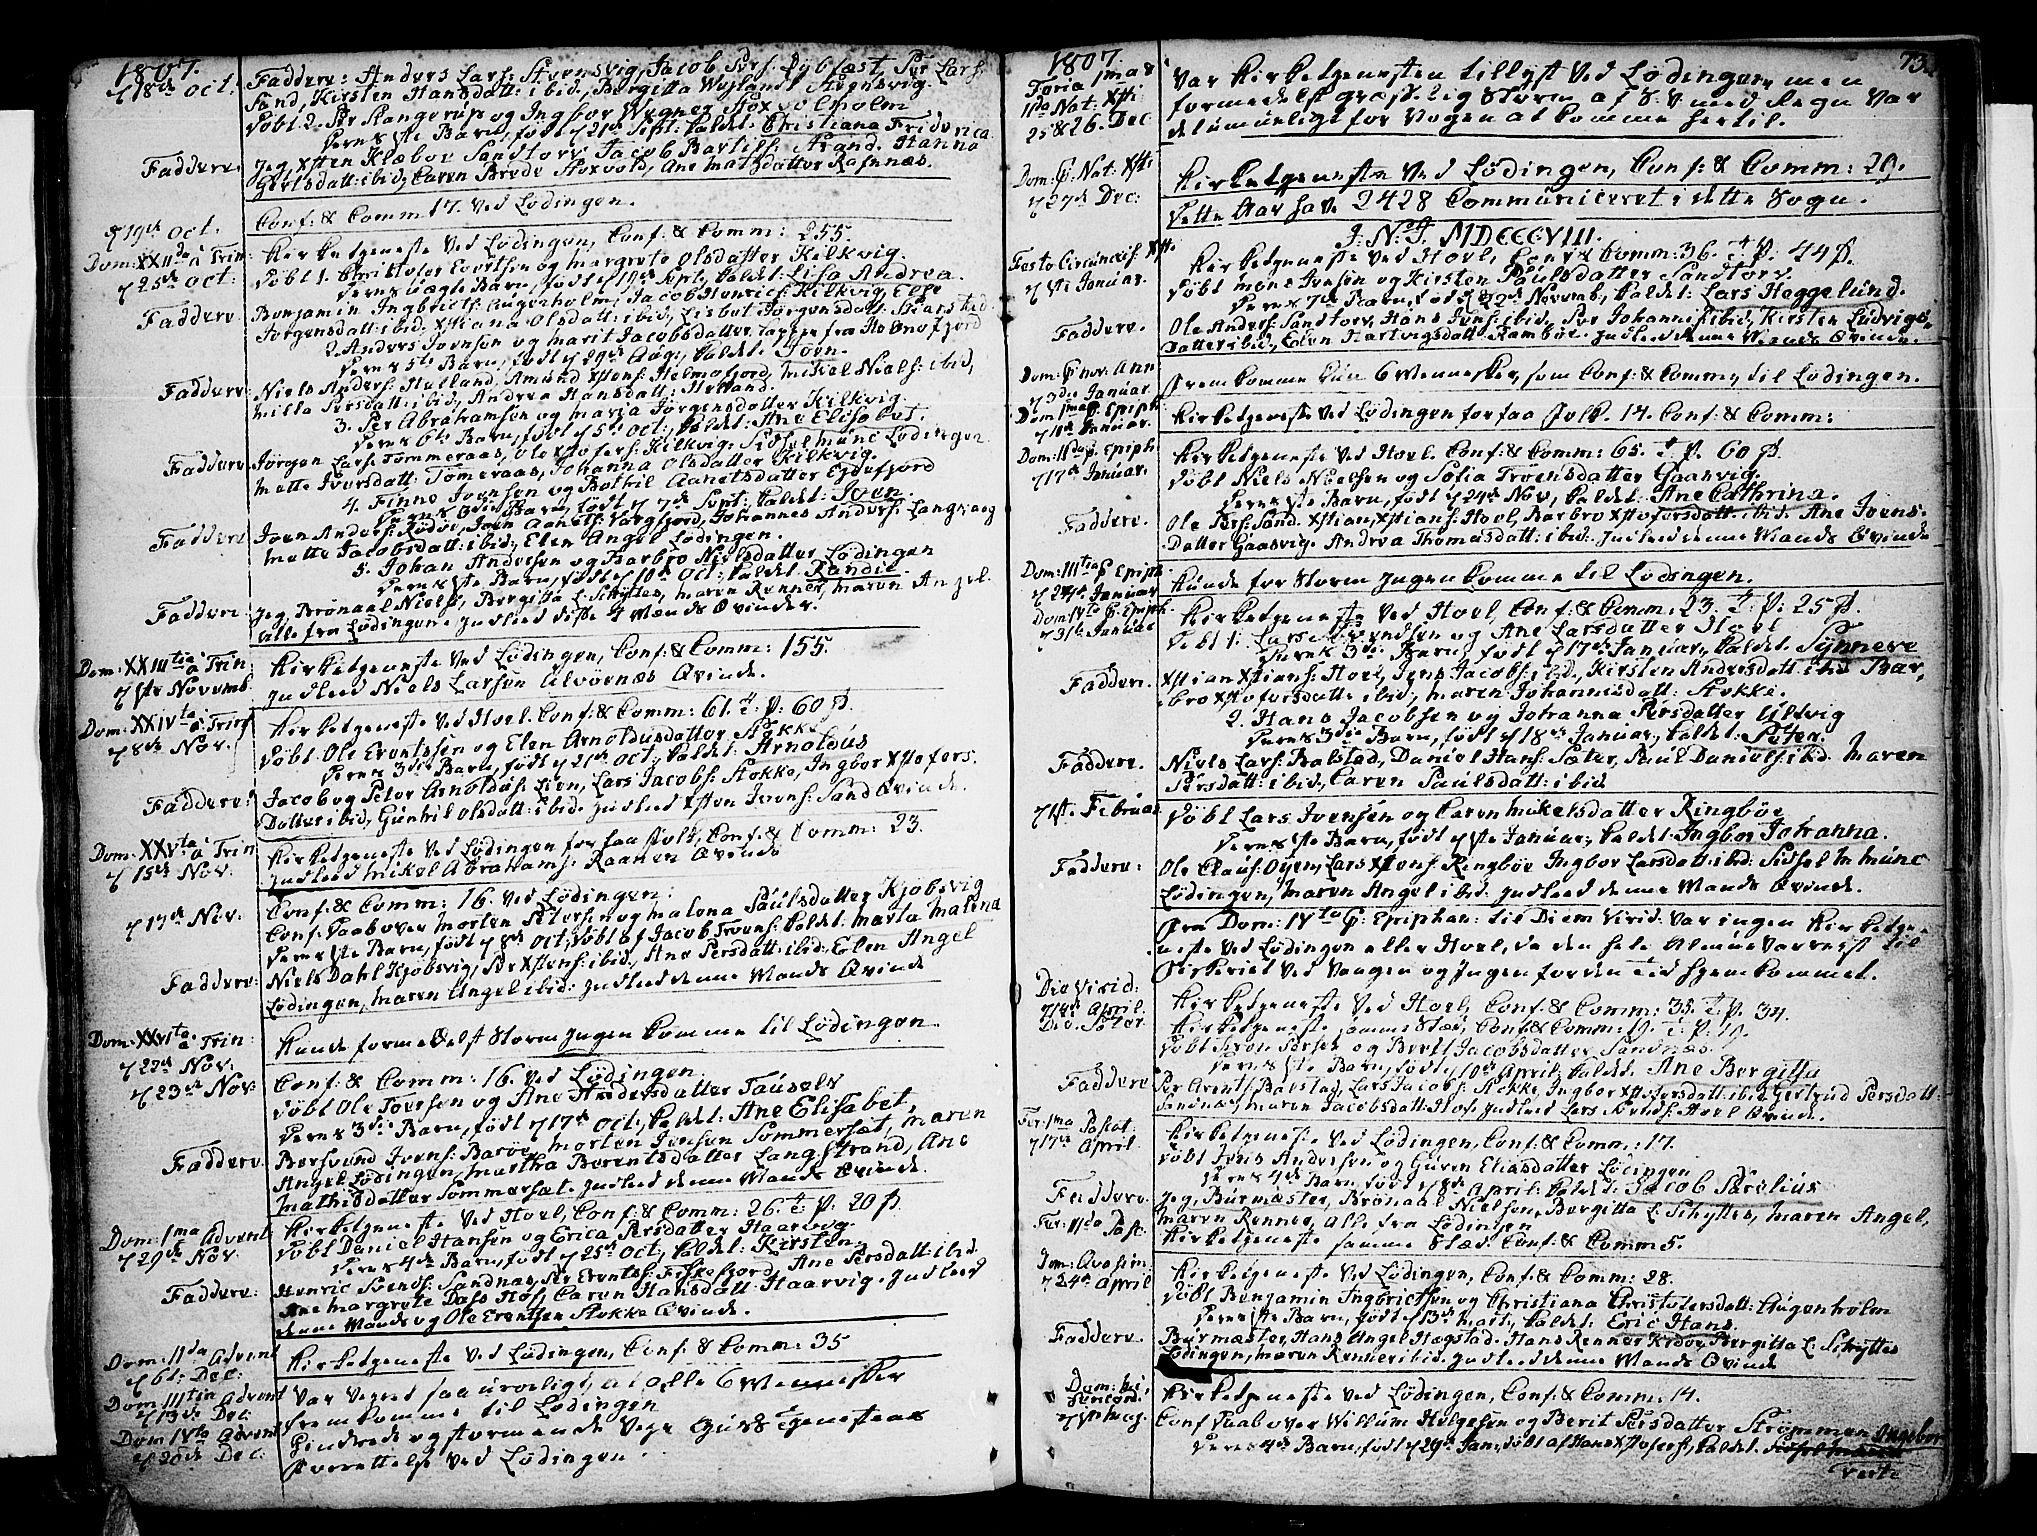 1807.
d 18de Oct.
Faddere: Anders Lars: Steensvig, Jacob Pers: Dybfæst, Per Lars:
Sand, Kirsten Hansdatt: ibid, Bergitta Weylandt Steensvig.
Døbt 2. Per Slangerup og Ingbor Wegner Stoxvoldholm
Deres 1ste Barn, født d 21de Sept: kaldet Christiana Friderica
Fadder. Jeg, Xsten Klæboe Sandtorv Jacob Bartels: Strand. Hanna
Gertsdatt: ibid, Caren Brode Stoxvold, Ane Matsdatter Rafsnæs.
d 19de Oct. Conf: & Comm 17. ved Lødingen.
Dom: XXIIda a Trin d 25de Oct: Kirketjeneste ved Lødingen, Conf: & Comm: 255.
Døbt 1. Christofer Evertsen og Margrete Olsdatter Kilkvig.
Deres ægte Barn, født d 19de Sept: kaldet: Lisa Andrea.
Faddere Benjamin Ingbricts: Augenholm, Jacob Henrics: Kilkvig, Else
Jørgensdatt: ibid, Xstiana Olsdatt: ibid, Lisbet Jørgensdatt: Stianstad.
2. Anders Joensen og Marit Jacobsdatter, Lappe fra Helmofjord
Deres 5te Barn, født d 29de Aug: kaldet: Joen.
Faddere Niels Anders: Helland, Amund Xstens: Helmofjord, Mikel Niels: ibid,
Milla Persdatt: ibid, Andrea Hansdatt: Helland.
3. Per Abrahamsen og Maria Jørgensdatter Kilkvig.
Deres 6te Barn, født d 5te Oct: kaldet: Ane Elisabet.
Faddere Jørgen Lars: Tømmeraas, Ole Xstofers: Kilkvig, Sidsel Munc Lødingen
Mette Iversdatt: Tømeraas, Johanna Olsdatter Kilkvig.
4. Finne Joensen og Bothil Aanetsdatter Eidefjord
Deres 3die Barn, født d 7de Sept: kaldet: Iver.
Faddere Joen Anders: Rødøe, Joen Aanets: Vargfjord, Johannes Anders: Langvaag
Mette Jacobsdatt: ibid, Elen Angel Lødingen.
5. Johan Andersen og Barbro Nielsdatter Lødingen
Deres 1ste Barn, født d 10de Oct: kaldet Randie
Faddere: Jeg, Brønaal Niels:, Bergitta L: Schyttes, Maren Renner, Maren Angel
alle fra Lødingen. Indleed disse 4 Mænds Qvinder.
Dom: XXIIItia a Trin: d 1ste Novemb. Kirketjeneste ved Lødingen, Conf: & Comm: 155.
Indleed Niels Larsen Alvøenæs Qvinde.
Dom: XXIVta a Trin d 8de Nov. Kirketjeneste ved Hoel. Conf: & Comm: 61. T. P. 60 ß.
Døbt Ole Erentssen og Elen Arnoldusdatter Stokke
Deres 3die Barn, født d 21de Oct: kaldet: Arnoldus
Faddere: Jacob og Peter Arnoldus: Lien, Lars Jacobs: Stokke, Ingbor Xstofers
Datter ibid, Gunhil Olsdatt: ibid. Indleed Xsten Ivers: Sand Qvinde.
Dom: XXVta a Trin d 15de Nov. Kirketjeneste ved Lødingen for faa Folk, Conf: & Comm: 23.
Indleed Mikel Abrahams: Raanen Qvinde
d 17de Nov: Conf: & Comm: 16. ved Lødingen:
Conf: Daab over Morten Petersen og Malena Paulsdatter Kjøbsvig
Deres 1ste Barn, født d 8de Oct: Døbt af Jacob Troens: kaldet: Marta Malena
Faddere: Niels Dahl Kjøbsvig, Per Xstens: ibid, Ane Persdatt: ibid: Elen Angel
Lødingen, Maren Angel ibid: Indleed denne Mands Qvinde
Dom: XXVIta a Trin: d 22de Nov: Kunde formedelst Storm Ingen komme til Lødingen
d 23de Nov: Conf: & Comm: 16. ved Lødingen
Døbt Ole Toersen og Ane Andersdatter Tauselv
Deres 3die Barn, født d 17de Oct: kaldet: Ane Elisabet,
Faddere. Bersvend Ivers: Barøe, Morten Jensen Sommersæt, Maren
Angel Lødingen, Martha Berentsdatter Langstrand, Ane
Mathisdatter Sommersæt. Indleed denne Mands Qvinde.
Dom: 1ma Advent d 29de Nov. Kirketjeneste ved Hoel, Conf: & Comm: 26. T: P. 20 ß.
Døbt Daniel Hansen og Erica Persdatter Haarvig.
Deres 4de Barn, født d 25de Oct: kaldet: Kirsten.
Faddere: Henric Svends: Sandnæs, Per Erents: Fiskefjord, Ane Persdatt ibid.
Ane Margrete Dass Hof, Caren Hansdatt: Haarvig. Indleed
denne Mands og Ole Erentsen Stokke Qvinde.
Dom: 11da Advent d 6te Dec: Kirketjeneste ved Lødingen, Conf: & Comm: 35
Dom: 111tia Advent d 13de Dec: Var Veyret saa uroeligt, at alle 6 Mennesker
fremkomme til Lødingen
Dom 1Vta Advent d 20de Dec: Hindrede og stormende Veyr Guds Tjenestens
Forrettelse ved Lødingen.
1807 73.
Feria 1ma & 11da Nat: Xsti 25 & 26. Dec Var Kirketjenesten tillyst ved Lødingen, men
formedelst græsselig Storm af S.V med Regn var
det umueligt for nogen at komme hertil.
Dom: P. Nat: Xsti d 27de Dec: Kirketjeneste ved Lødingen, Conf: & Comm: 29.
Dette Aar have 2428 Communiceret i dette Sogn.
J. N. J. MDCCCVIII.
Festo Circumcis: Xsti d 1ste Januar. Kirketjeneste ved Hoel, Conf: & Comm: 36. T. P. 44 ß.
Døbt Mons Iversen og Kirsten Paulsdatter Sandtorv.
Deres 7de Barn, født d 22de Novemb, kaldet: Lars Heggelund.
Faddere. Ole Anders: Sandtorv, Hans Ivers: ibid, Per Johannes: ibid, Kirsten Ludvigs
Datter ibid, Elen Hartvigsdatt: Rambøe. Indleed denne Mands Qvinde.
Dom: P. nov. Ann d 3die Januar Fremkomme kun 6 Mennesker, som Conf: & Comm:, til Lødingen.
Dom 1ma p. Epiph d 10de Januar. Kirketjeneste ved Lødingen for faa Folk. 14. Conf: & Comm:
Dom: 11da p. Epiph: d 17de Januar. Kirketjeneste ved Hoel. Conf: & Comm: 65. T. P. 60 ß.
Døbt Niels Nielsen og Sofia Troensdatter Gaasvig.
Deres 1ste Barn, født d 24de Nov, kaldet: Ane Cathrina.
Faddere. Ole Pers: Sand. Xstian Xstians: Hoel, Barbro Xstofersdatt: ibid: Ane Ivers
Datter Gaasvig. Andrea Thomasdatt: ibid: Indleed denne Mands Qvinde
Dom: 111tia p Epiph d 24de Januar Kunde for Storm Ingen komme til Lødingen.
Dom: 1Vta p. Epiph. d 31te Januar Kirketjeneste ved Hoel, Conf: & Comm: 23. T. P. 25 ß.
Døbt 1. Lars Svendsen og Ane Larsdatter Hoel
Deres 3die Barn, født d 17de Januar, kaldet: Synnere
Faddere. Xstian Xstians: Hoel, Jens Jacobs: ibid, Kirsten Andersdatt: ibid Bar,
bro Xstofersdatt: ibid, Maren Johannisdatt: Stokke.
2. Hans Jacobsen og Johanna Persdatter Ulvig
Deres 3die Barn, født d 18de Januar, kaldet: Peter.
Faddere. Niels Lars: Balstad, Daniel Hans: Sæter, Paul Daniels: ibid. Maren
Persdatt: ibid, Caren Paulsdatt: ibid
d 1ste Februar Døbt Lars Ivensen og Caren Mikelsdatter Ringbøe
Deres 1ste Barn, født d 1ste Januar, kaldet: Ingbor Johanna.
Faddere: Ole Claus: Øyen, Lars Xstens: Ringbøe Ingbor Larsdatt: ibid: Sidsel M: Munc
Lødingen, Maren Angel ibid. Indleed denne Mands Qvinde.
Fra Dom: 1Vta p. Epiphan: til Diem Virid: var ingen Kirketje
neste ved Lødingen eller Hoel, da den hele Almue var reist til
Fiskeriet ved Vaagen og Ingen for den Tid hjemkommet.
Die Virid: d 14de April. Kirketjeneste ved Hoel, Conf: & Comm: 35. T. P. 34.
Kirketjeneste samme Stæd, Conf: & Comm: 19.
Døbt Siven Persen og Berit Jacobsdatter Sandnæs.
Deres 1ste Barn, født d 10de April, kaldet: Ane Bergitta
Faddere Per Arents: Balstad, Lars Jacobs: Stokke, Ingbor Xstofersdatt: ibid, Gertrud Persdatt:
Sandnæs, Maren Jacobsdatt: Hof. Indleed Lars Svends: Hoel Qvinde.
Fer: 1ma Pascat: d 17de April. Kirketjeneste ved Lødingen, Conf: & Comm: 17.
Døbt Jens Andersen og Guren Eliasdatter Lødingen
Deres 4de Barn, født d 8de April: kaldet: Jacob Parelius
Faddere. Jeg, Burmæster, Brønaal Nielsen, Bergitta L: Schyttes, Maren Angel,
Maren Renner, alle fra Lødingen
Fer: 11da Pasc: Kirketjeneste samme Stæd. Conf: & Comm 5.
Dom: Quasim: d 24de April Kirketjeneste ved Lødingen, Conf: & Comm: 28.
Døbt Benjamin Ingbrictsen og Christiana Christofersdatt: Augenholm
Deres 1ste Barn, født d 13de Mart: kaldet: Eric Hans.
Faddere. Burmæster, Hans Angel Hægstad. Hans Renner Kidøe, Bergitta L: Schyttes
Lødingen, Maren Renner ibid. Indleed denne Mands Qvinde
Dom: Misericord: d 1ste Maj. Kirketjeneste ved Lødingen, Conf: & Comm: 14.
Conf Daab over Willum Helgesen og Berit Persdatter Strømmen
Deres 4de Barn, født d 29de Jan: døbt af Hans Xstofers:, kaldet. Ingebor
verte